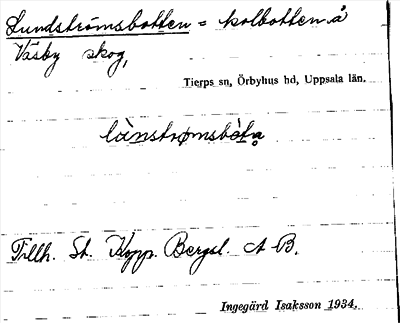 Lundströmsbotten = kolbotten å
Väsby skog,
Tierps sn, Örbyhus hd, Uppsala län.
Tillh. St. Kopp. Bergsl. A B.
Ingegärd Isaksson 1934.